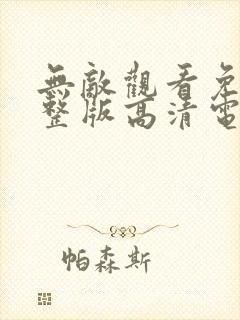 無敵觀看免
整版高清電
帕森斯